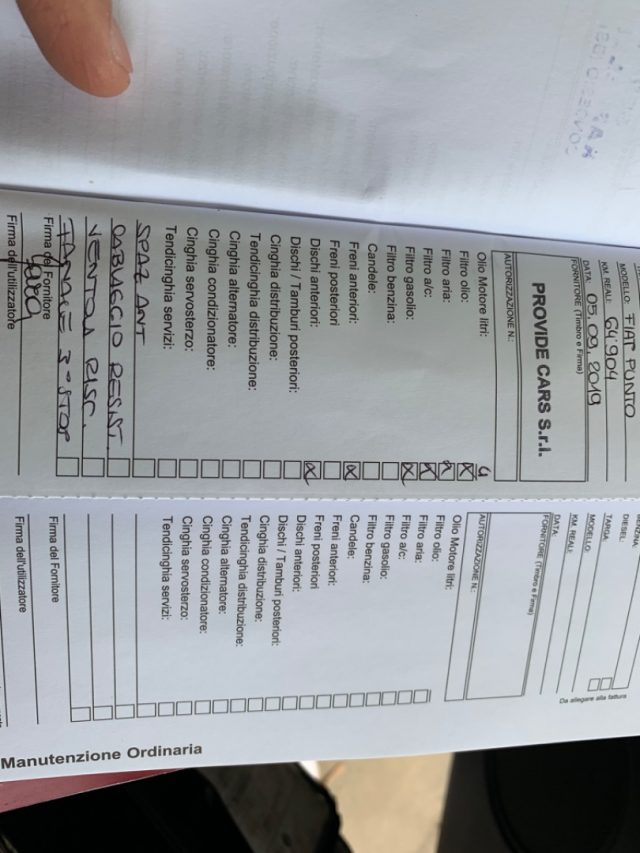 MODELLO: FIAT PUNTO
KM. REALI: 64904
DATA: 05.09.2019
FORNITORE (Timbro e Firma)
PROVIDE CARS S.r.l.
AUTORIZZAZIONE N.:
Olio Motore litri: 4
Filtro olio: X
Filtro aria: X
Filtro a/c: X
Filtro gasolio: X
Filtro benzina:
Candele:
Freni anteriori: X
Freni posteriori
Dischi anteriori: X
Dischi / Tamburi posteriori:
Cinghia distribuzione:
Tendicinghia distribuzione:
Cinghia alternatore:
Cinghia condizionatore:
Cinghia servosterzo:
Tendicinghia servizi:
SPAZ ANT
CABLAGGIO RESIST.
VENTOLA RISC.
3° STOP
Firma del Fornitore
Firma dell'utilizzatore
BENZINA:
DIESEL:
TARGA:
MODELLO:
KM. REALI:
DATA:
FORNITORE (Timbro e Firma)
AUTORIZZAZIONE N.:
Olio Motore litri:
Filtro olio:
Filtro aria:
Filtro a/c:
Filtro gasolio:
Filtro benzina:
Candele:
Freni anteriori:
Freni posteriori
Dischi anteriori:
Dischi / Tamburi posteriori:
Cinghia distribuzione:
Tendicinghia distribuzione:
Cinghia alternatore:
Cinghia condizionatore:
Cinghia servosterzo:
Tendicinghia servizi:
Firma del Fornitore
Firma dell'utilizzatore
Da allegare alla fattura
Manutenzione Ordinaria